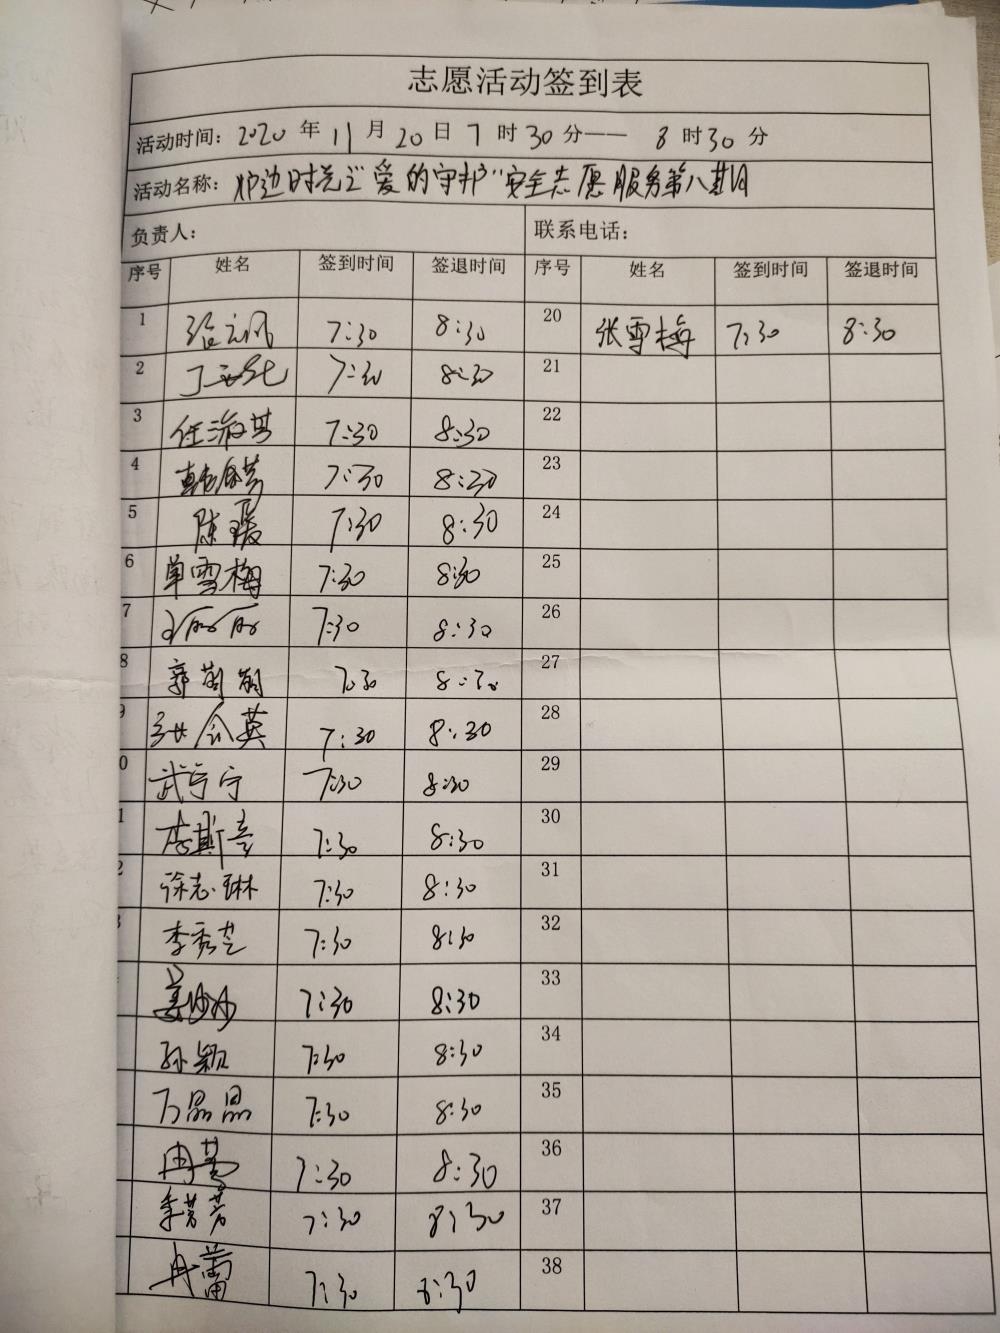 志愿活动签到表
活动时间：2020 年 11 月 20 日 7 时 30 分—— 8 时 30 分
活动名称：炉边时光之"爱的守护"安全志愿服务第八期
负责人： 联系电话：
序号 姓名 签到时间 签退时间 序号 姓名 签到时间 签退时间
1 7:30 8:30 20 张雪梅 7:30 8:30
2 7:30 8:30 21
3 任淑芸 7:30 8:30 22
4 7:30 8:30 23
5 陈瑗 7:30 8:30 24
6 单雪梅 7:30 8:30 25
7 王丽丽 7:30 8:30 26
8 郭萌萌 7:30 8:30 27
9 会英 7:30 8:30 28
0 武宁宁 7:30 8:30 29
1 李斯彦 7:30 8:30 30
2 徐志琳 7:30 8:30 31
3 李秀芝 7:30 8:30 32
姜沙沙 7:30 8:30 33
孙颖 7:30 8:30 34
万晶晶 7:30 8:30 35
冉 7:30 8:30 36
季芳芳 7:30 8:30 37
冉蕾 7:30 8:30 38